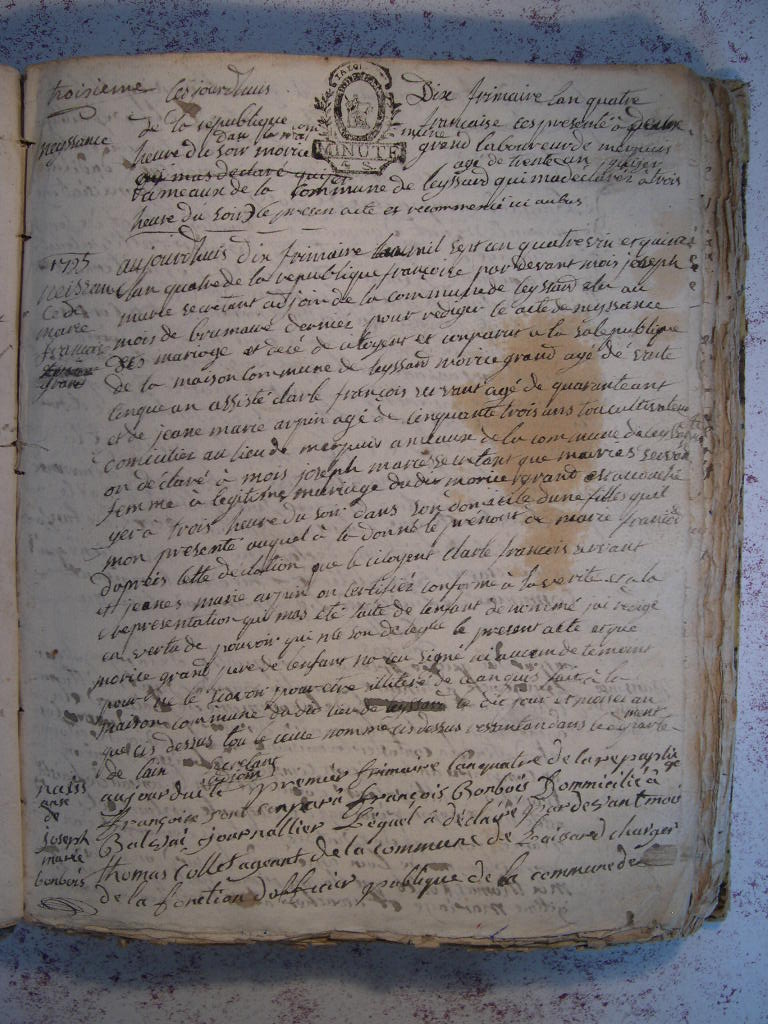 troisieme Cejourdhuis Dix frimaire lan quatre
de la republique francaise est presenté à deux
neyssance
heure du soir morice grand laboureur de merpuis
agé de trente cin
rameaux de la commune de leyssard qui madeclarez à trois
heure du soir le presen acte et recommencé ici aubas
1795
neissan
ce de
marie
francoise
grant
aujourdhuis dix frimaire mil sept cen quatrevin et quinze
lan quatre de la republique francoise pardevant mois joseph
marie secretant adjoin de la commune de leyssard elu au
mois de brumaire dernier pour rediger le acte de neyssance
des mariage et decé de citoyent et comparut a la sale publique
de la maison commune de leyssard morice grand agé de trente
cinque an assisté clarle françois servant agé de quaranteant
et de jeane marie arpin agé de cinquante trois ans tou cultivateur
domicilier au lieu de merpuis a meaux de la commune de leyssard
on declaré à mois joseph marie secretant que
femme à legitime mariage dudit morice grant est acouché
yer a trois heure du soir dans son domicile dune filles quil
mon presenté auqual à lé donné le prénont de marie francoise
dapreis cette declation que le citoyent clarle francois servant
et jeanes marie arpin on certifiez conforme à la verité et a la
representation qui mas eté faite de lenfant denommé jai redigé
en vertu de pouvoir qui me son delegué le present acte et que
morice grant pere de lenfant no ceu signé ni aucun de temoint
pour ne le savoir pour etre illiteré de ceanquis fait à la
maison commune du dit lieu de leyssard le dit jour et mois et an
que cis dessus tou le ceuse nommé cis dessus restant dans le departe
ment
de lain
secretant
adjoin
naiss
anse
de
joseph
marie
bonbois
aujordui le premier frimaire lan quatre de la repuplique
françoise sont conparü françois Bonbois Dommicilié à
Balvai journallier Lequel à déclaré pardevant moi
thomas Collet ageant de la commune de Laisard charger
de la fonction dofficier publique de la commune de